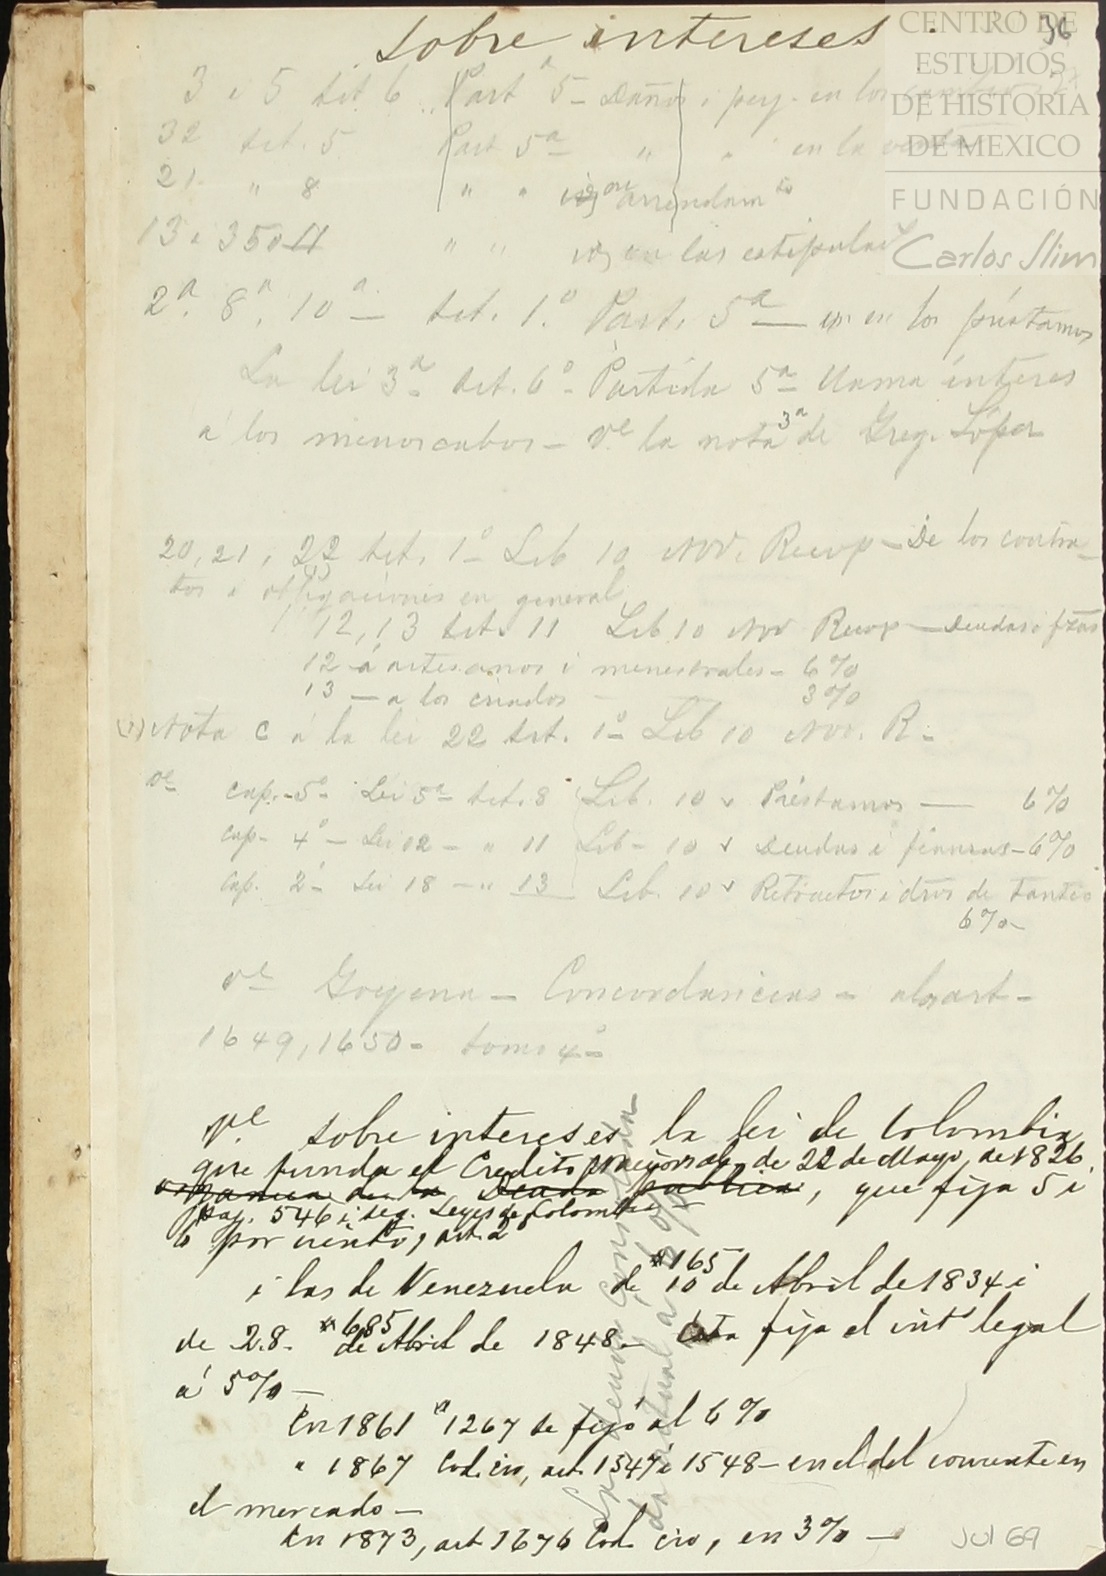 Sobre intereses.
36
CENTRO DE
ESTUDIOS
DE HISTORIA
DE MEXICO
FUNDACIÓN
Carlos Slim
3 i 5 tit 6 Part 5ª - Daños i perj. en los
32 tit. 5 Part 5ª " " en la venta
21 " 8 " " id arrendam to
13 i 35 11 " " id en las estipulac
2ª. 8ª. 10ª - tit. 1.º Part. 5ª - id en los préstamos
La lei 3ª tit. 6º - Partida 5ª llama interes
á los menoscabos - Ve la nota 3ª de Greg. López
20, 21, 22 tit. 1º Lib 10 Nov. Recop - De los contra-
tos i obligaciones en general
12, 13 tit. 11 Lib. 10 Nov Recop - Deudas i fzas
12 - á artesanos i menestrales - 6%
13 - a los criados - 3%
(1) Nota C á la lei 22 tit. 1º Lib 10 Nov. R -
Ve cap. 5º Lei 5ª tit. 8 Lib. 10 Préstamos - 6%
Cap - 4º - Lei 12 - " 11 Lib - 10 Deudas i fianzas - 6%
Cap. 2º Lei 18 - " 13 Lib. 10 Retractos i dros de tanteo
6% -
Ve Goyena - Concordancias - al art -
1649, 1650 - tomo 4º
Ve. sobre intereses la lei de Colombia
que funda el Credito Nacional, de 22 de Mayo, de 1826
organica de la Deuda publica, que fija 5 i
pag. 546 i seg. Leyes de Colombia
6 por ciento, art. 2º
i las de Venezuela de 10 de Abril de 1834 i
#165
de 28. de Abril de 1848 - Esta fija el intº legal
685
á 5% -
En 1861 1267 se fijó al 6%
" 1867 Cod. civ, art. 1547 i 1548 - en el del corriente en
el mercado -
En 1873, art 1676 Cod civ, en 3% -
La deuda consolida-
da
Jul 69